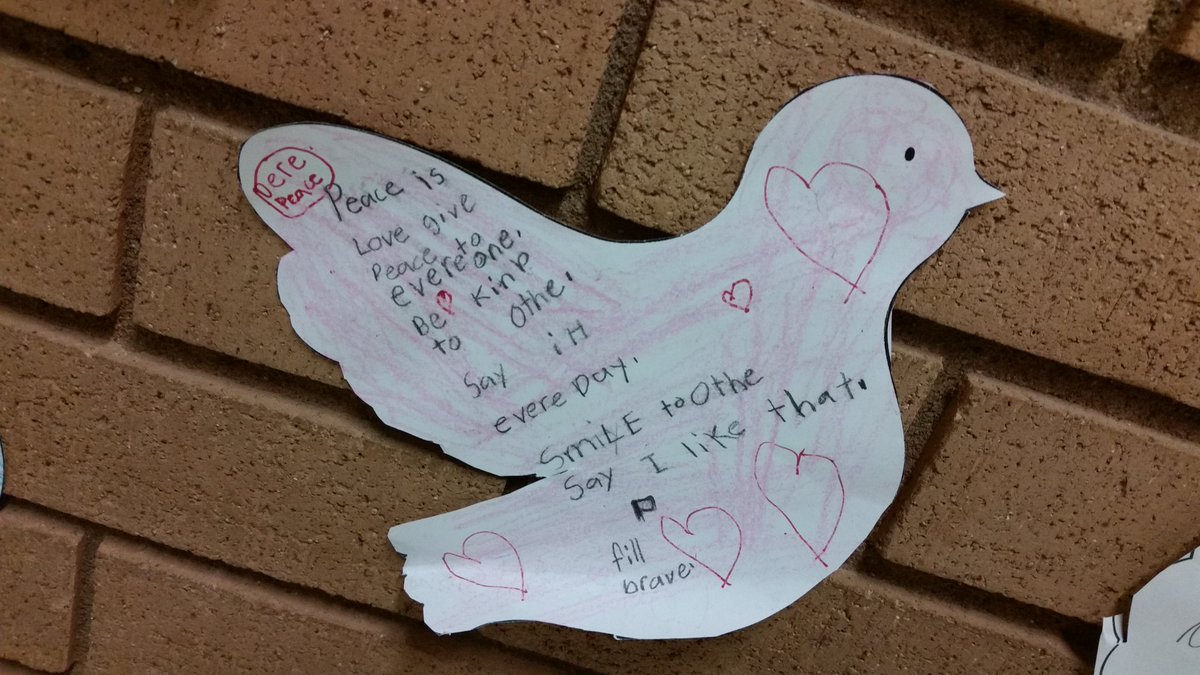 Dere.
Peace
Peace is
Love give
Peace to
evereone.
Be Kinp
to Othe.
Say iH
evere Day.
SmiLE to Othe
Say I like that.
P
fill
brave.